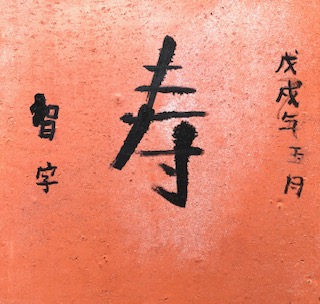 戊戌年五月
寿
智字